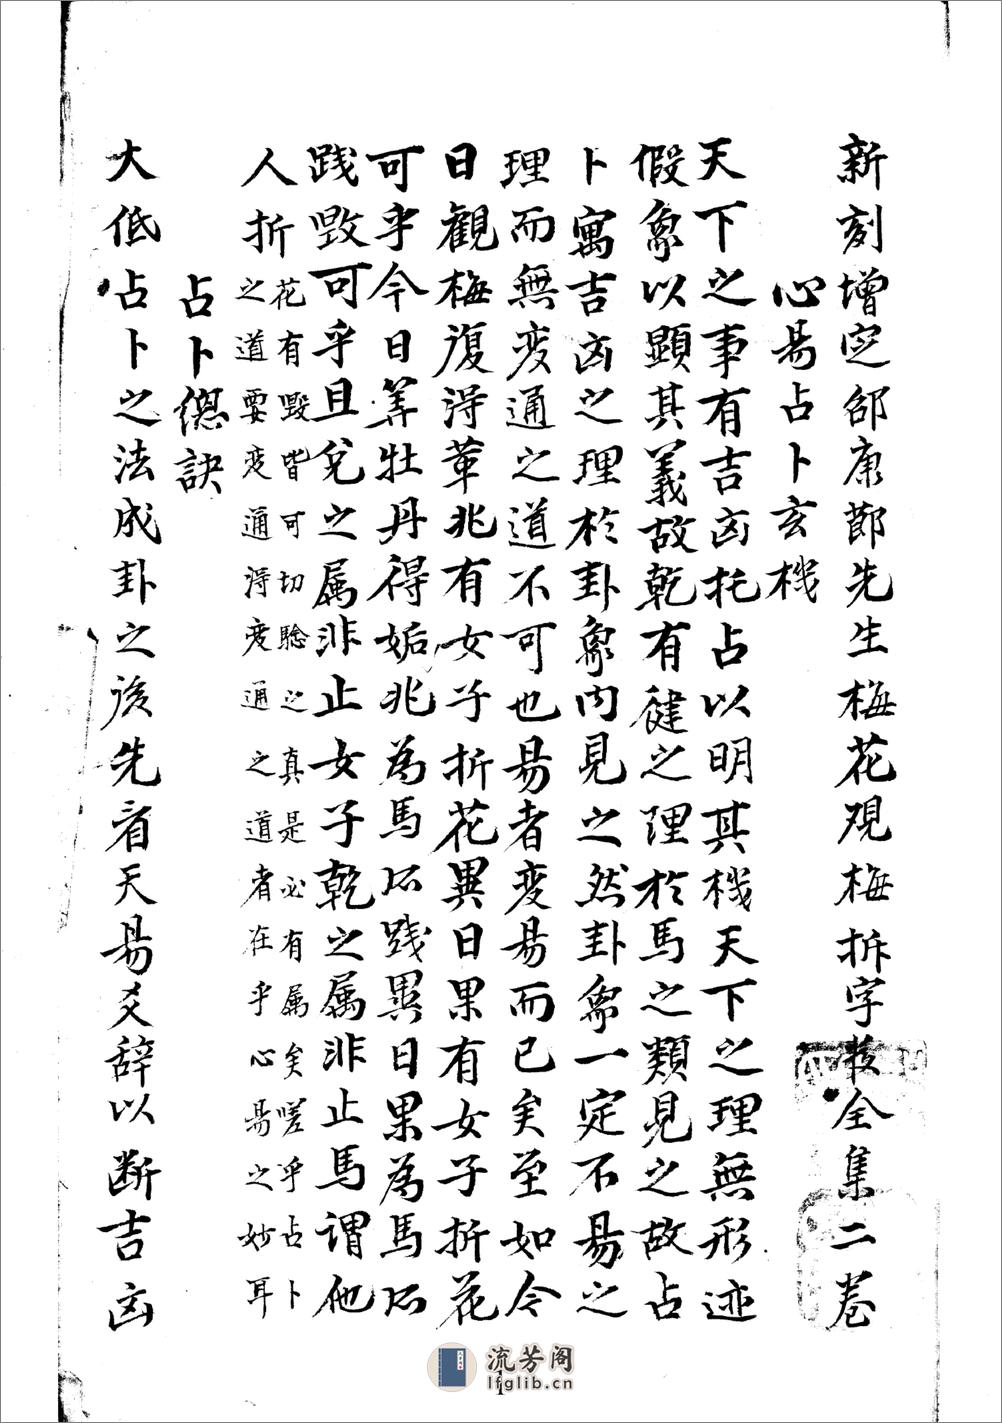 新刻增定邵康節先生梅花观梅拆字数全集二卷
心易占卜玄機
天下之事有吉凶托占以明其機天下之理無形迹
假象以顕其義故乾有健之理於馬之類見之故占
卜寓吉凶之理於卦象内見之然卦象一定不易之
理而無变通之道不可也易者变易而已矣至如今
日觀梅復得革兆有女子折花異日果有女子折花
可乎今日筭牡丹得姤兆為馬所践異日果為馬所
践毁可乎且兌之属非止女子乾之属非止馬謂他
人折花有毁皆可切驗之真是必有属矣嗟乎占卜
之道要变通得变通之道者在乎心易之妙耳
占卜總訣
大低占卜之法成卦之後先看天易爻辞以断吉凶
流芳阁
lfglib.cn
1